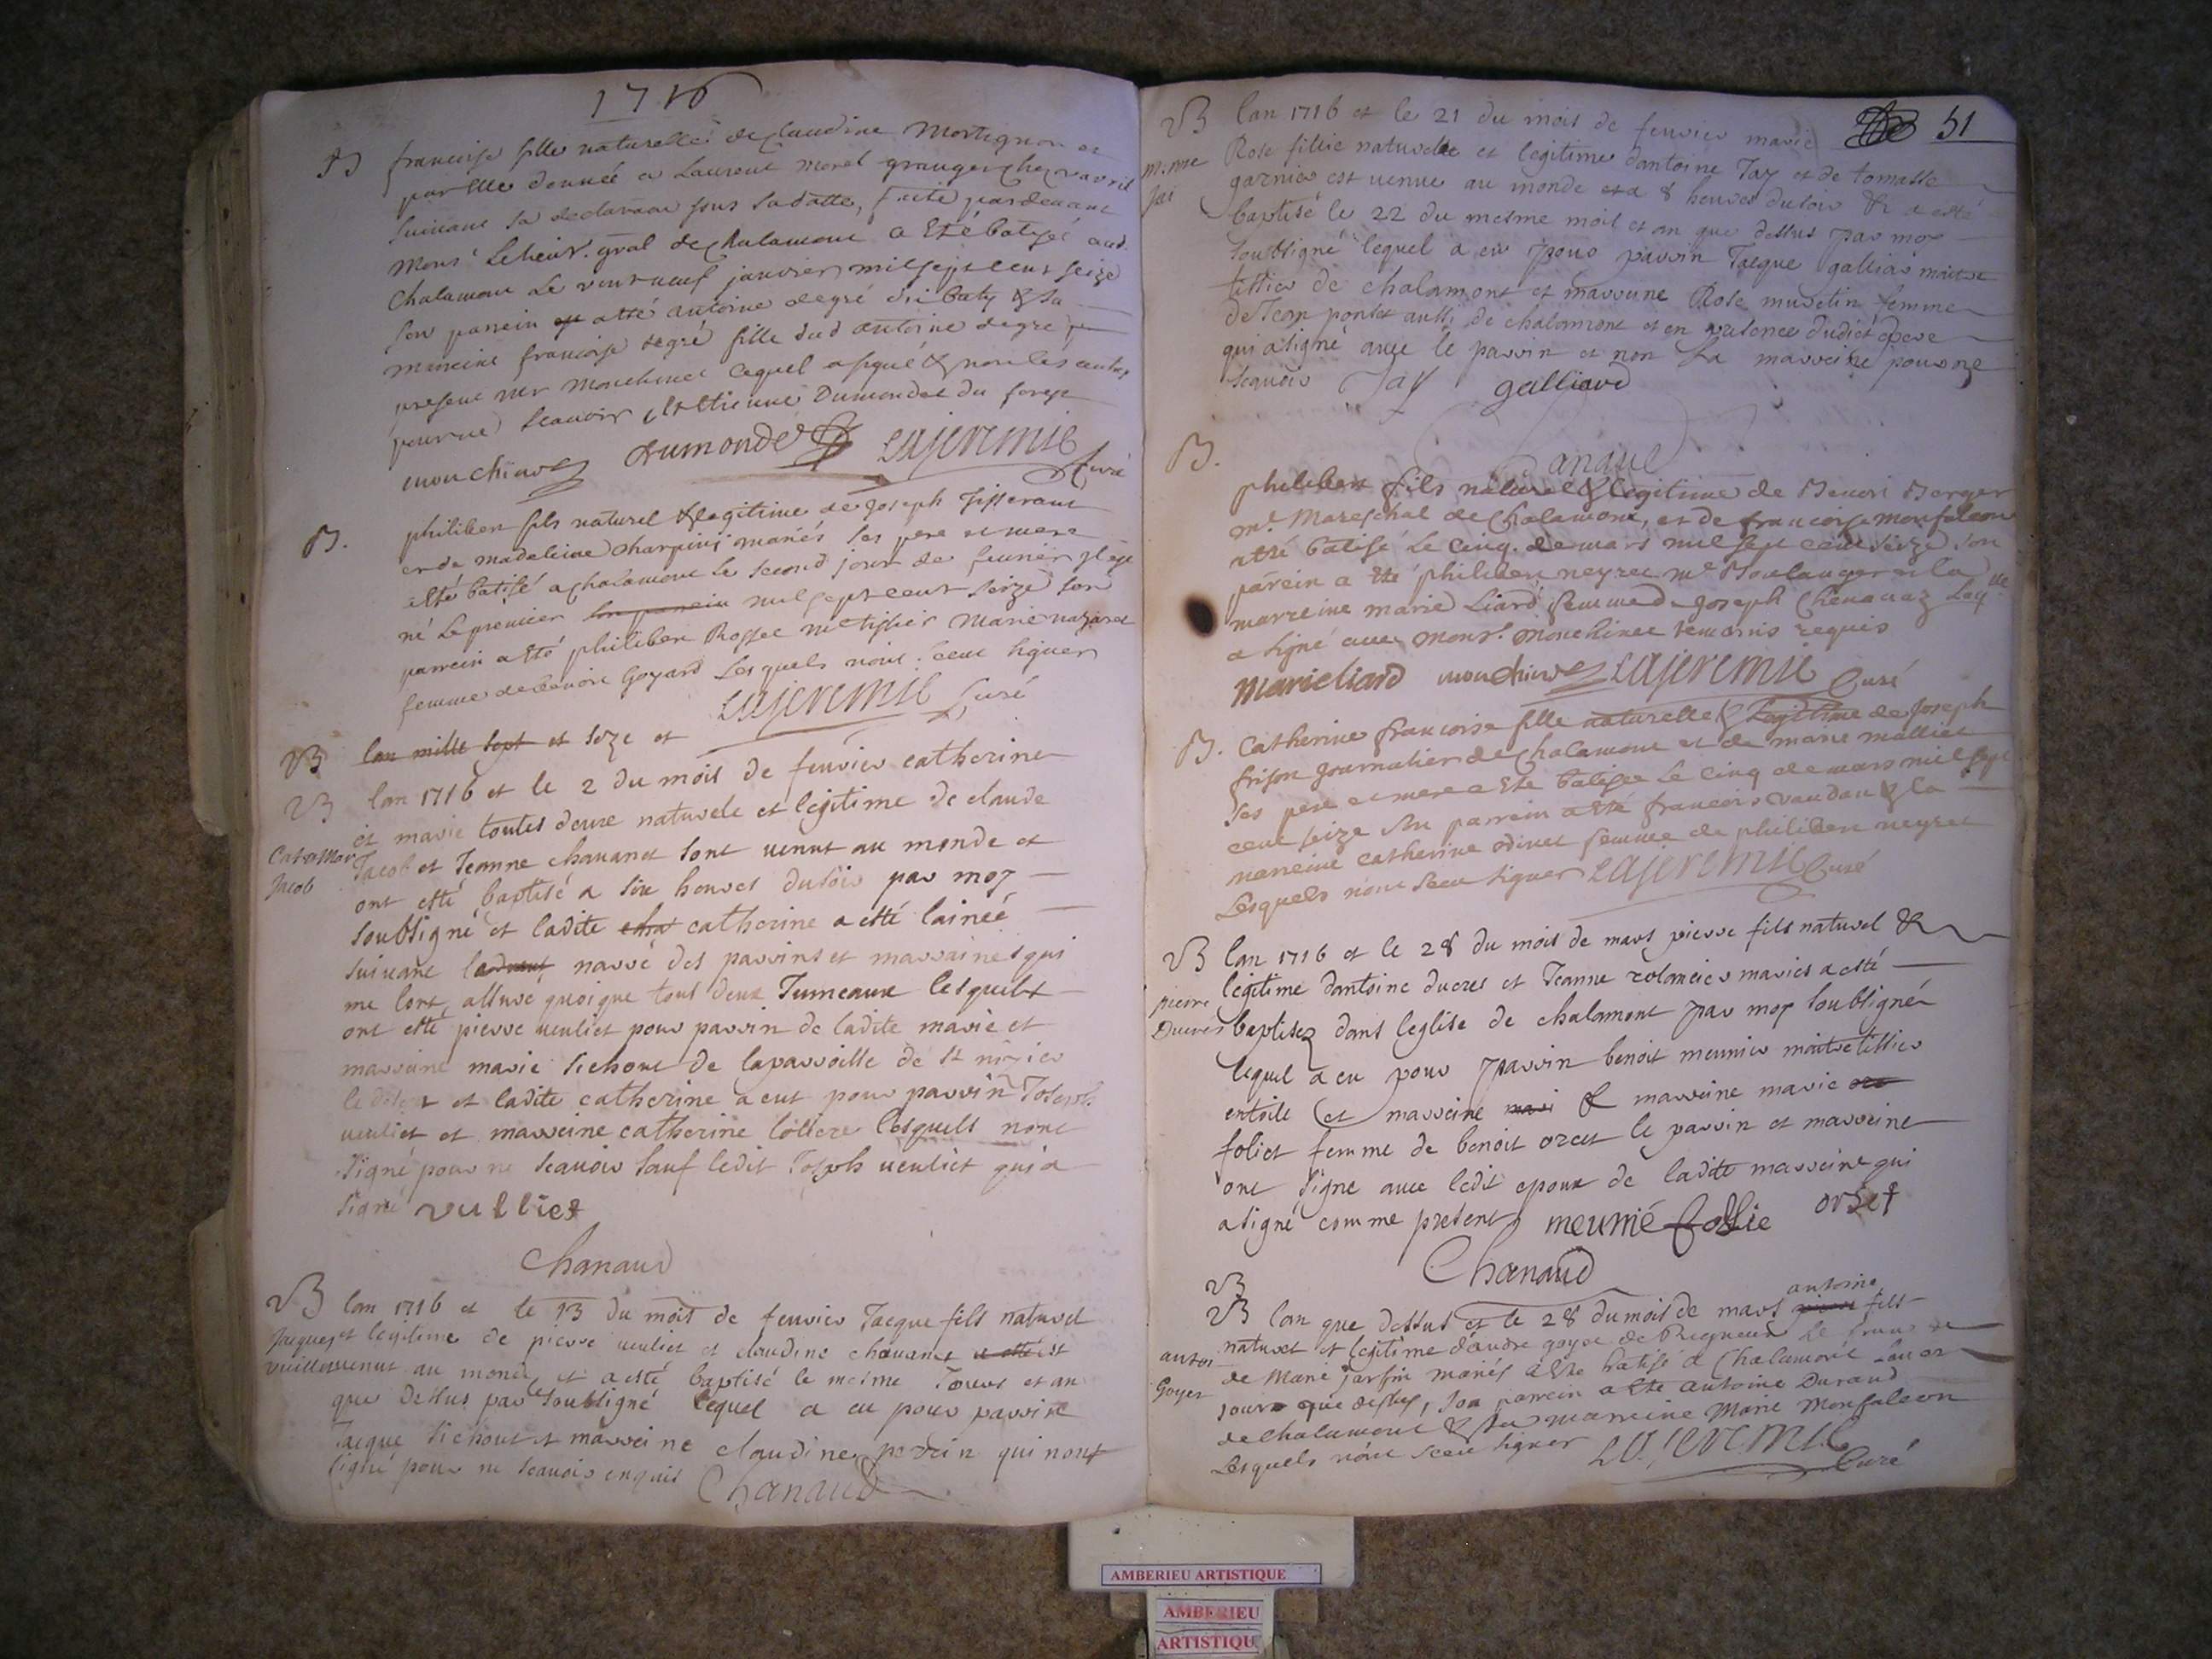 1716
B francoise fille naturelle de Claudine Mortignon et
par Elle donnée a Laurent morel granger chez
suivant sa declaraon sous sa datte, faite pardevant
Mons.r Le lieut.t gnal de chalamont a Eté batisée aud.
chalamont Le vint neuf janvier mil sept cent seize
son parrein a été antoine degré & sa
marreine francoise degré fille dud antoine degré
present Mr Monchinet lequel a signé & non les autres
pour ne scavoir, & Etienne Dumondet du
monchinet dumondet Lajeremie Curé
B. philibert fils naturel & legitime de joseph Tisserant
et de madeleine Charpini mariés ses pere et mere
a Eté batisé a chalamont le second jour de fevrier
né Le premier son parrein mil sept cent seize son
parrein a été philibert Rosset me tissier Marie nazaret
femme de benoit goyard Lesquels n'ont sceu signer
Lajeremie Curé
B lan mille sept et seze et
B lan 1716 et le 2 du mois de fevrier catherine
et marie toutes deux naturele et legitime de claude
Cat et Mar Jacob
Jacob et Jeanne chavanet sont venut au monde et
ont esté baptisé a six heures du soir par moy
soubsigné et ladite cha catherine a esté lainéé
suivant narré des parrins et marraines qui
me lont assuré quoique tous deux Jumeaux lesquels
ont esté pierre veuliet pour parrin de ladite marie et
marreine marie sichont de la parroisse de st nizier
le desert et ladite catherine a eut pour parrin Joseph
veuliet et marreine catherine lesquels nont
signé pour ne scavoir sauf ledit Joseph veuliet qui a
signé vulliet
Chanaud
B lan 1716 et le 13 du mois de fevrier Jacque fils naturel
Jacques vuillet
et legitime de pierre veuliet et claudine chavanet est
venut au monde et a esté baptisé le mesme Jour et an
que dessus par soubsigné lequel a eu pour parrin
Jacque sichont et marreine claudine perrin qui nont
signé pour ne scavoir enquis Chanaud
51
B lan 1716 et le 21 du mois de fevrier marie
m. rose Jai
Rose fillie naturele et legitime dantoine Jay et de tomasse
garnier est venue au monde a 8 heures du soir & a esté
baptisé le 22 du mesme mois et an que dessus par moy
soubsigné lequel a eu pour parrin Jacque galliar maitre
tissier de chalamont et marreine Rose muretin femme
de Jean ponset aussi de chalamont et en presence dudict pere
qui a signé avec le parrin et non la marreine pour ne
scavoir Jay galliard
Chanaud
B. philibert fils naturel & legitime de Benoit Berger
me Mareschal de Chalamont, et de francoise monfalcon
a été batisé Le cinq de mars mil sept cent seize son
parein a été philibert neyret me Boulanger et la
marreine marie Liard femme de joseph Chenavaz Laq.lle
a signé avec Mons.r monchinet temoins requis
marie liard monchinet Lajeremie Curé
B. Catherine francoise fille naturelle & Legitime de joseph
frison journalier de Chalamont et de marie malliet
ses pere et mere a Eté batisée Le cinq de mars mil sept
cent seize son parrein a été francois vaudan & la
marreine catherine odinet femme de philibert neyret
Lesquels n'ont sceu signer Lajeremie Curé
B lan 1716 et le 28 du mois de mars pierre fils naturel &
pierre Ducres
legitime dantoine ducres et Jeanne rolancier maries a esté
baptisez dans leglise de chalamont par moy soubsigné
lequel a eu pour parrin benoit meunier maitre tissier
en toile et marreine mari & marreine marie orc
foliet femme de benoit orcet le parrin et marreine
ont signe avec ledit epoux de ladite marreine qui
a signé comme present meunié follie orset
Chanaud
B
B lan que dessus et le 28 du mois de mars antoine fils
antoi Goyer
naturel et legitime dandre goyer de Rigneux Le franc
de Marie jarsin mariés a Eté batisé a Chalamont Lan et
jour que dessus, son parrein a Eté antoine Durand
de chalamont & sa marreine Marie Monfalcon
Lesquels n'ont sceu signer Lajeremie Curé
AMBERIEU ARTISTIQUE
AMBERIEU
ARTISTIQU